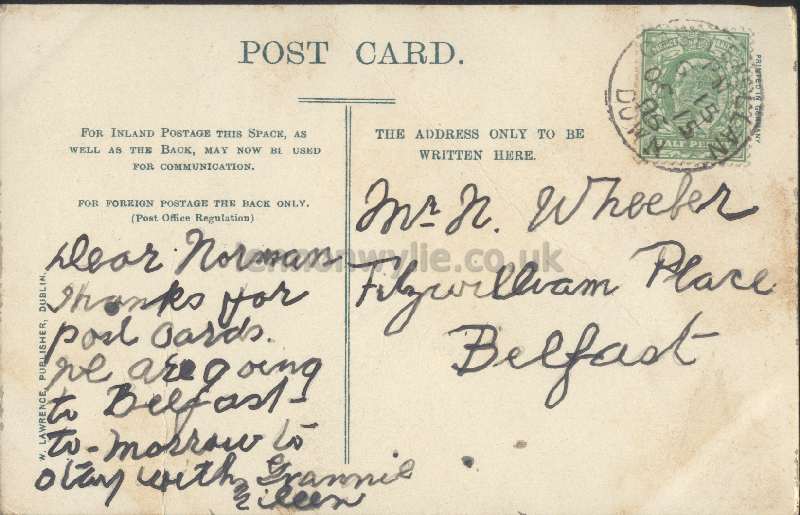 POST CARD.
FOR INLAND POSTAGE THIS SPACE, AS
WELL AS THE BACK, MAY NOW BE USED
FOR COMMUNICATION.
FOR FOREIGN POSTAGE THE BACK ONLY.
(Post Office Regulation)
THE ADDRESS ONLY TO BE
WRITTEN HERE.
W. LAWRENCE, PUBLISHER, DUBLIN.
PRINTED IN GERMANY
HALF PENNY
Dear Norman
thanks for
post cards.
we are going
to Belfast
to-morrow to
stay with Grannie
Eileen
Mr N. Wheeler
Fitzwilliam Place
Belfast
lennonwylie.co.uk